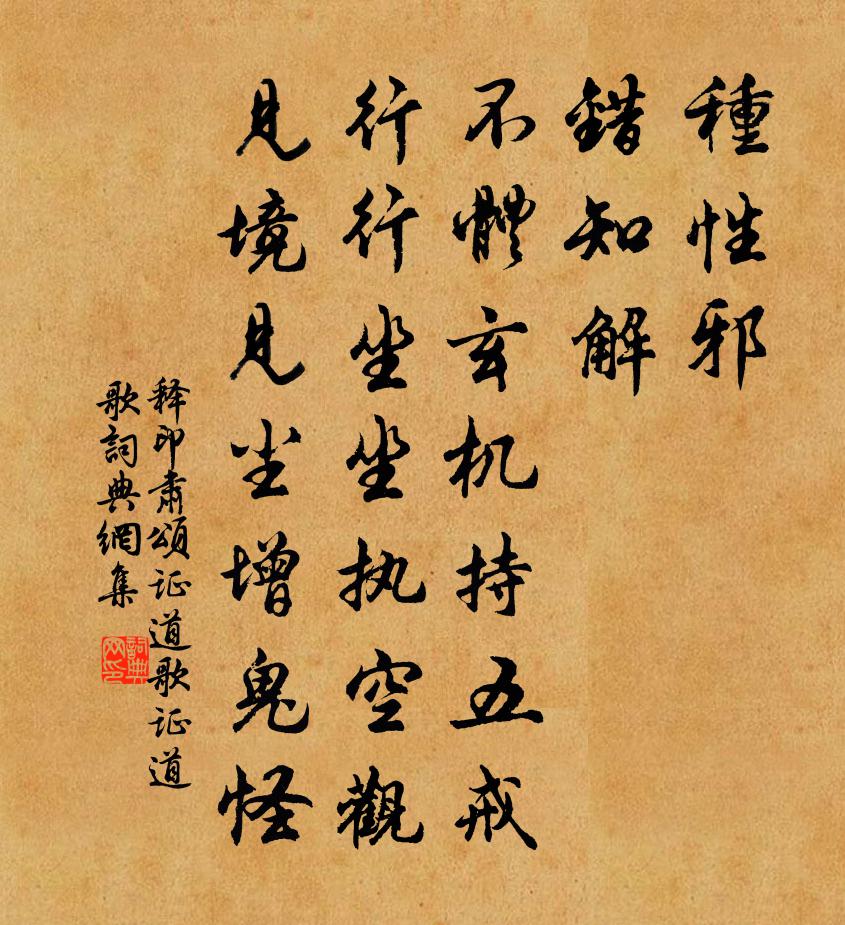 種性邪
錯知解
不體玄机持五戒
行行坐坐执空觀
見境見尘增鬼怪
释印肃頌证道歌证道
歌詞典網集
詞典
网印